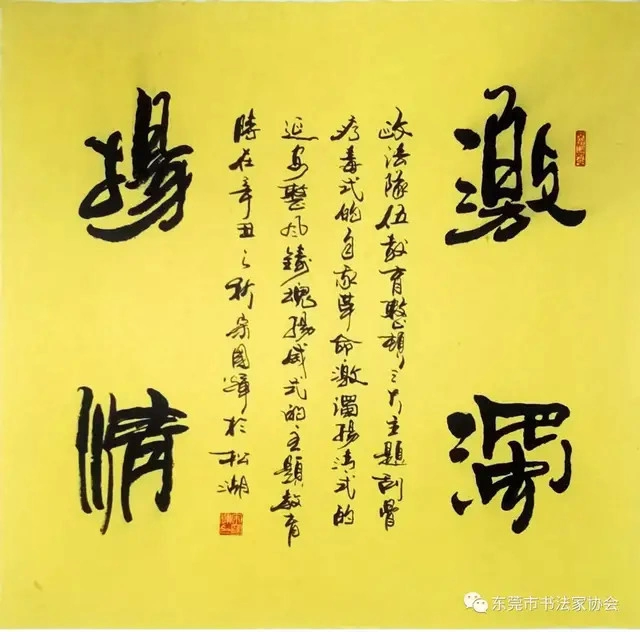 激濁
政法隊伍教育整頓三大主題刮骨
疗毒式的自我革命激濁揚清式的
延安整风鑄魂揚威式的主題教育
時在辛丑之秋國於松湖
揚清
东莞市书法家协会